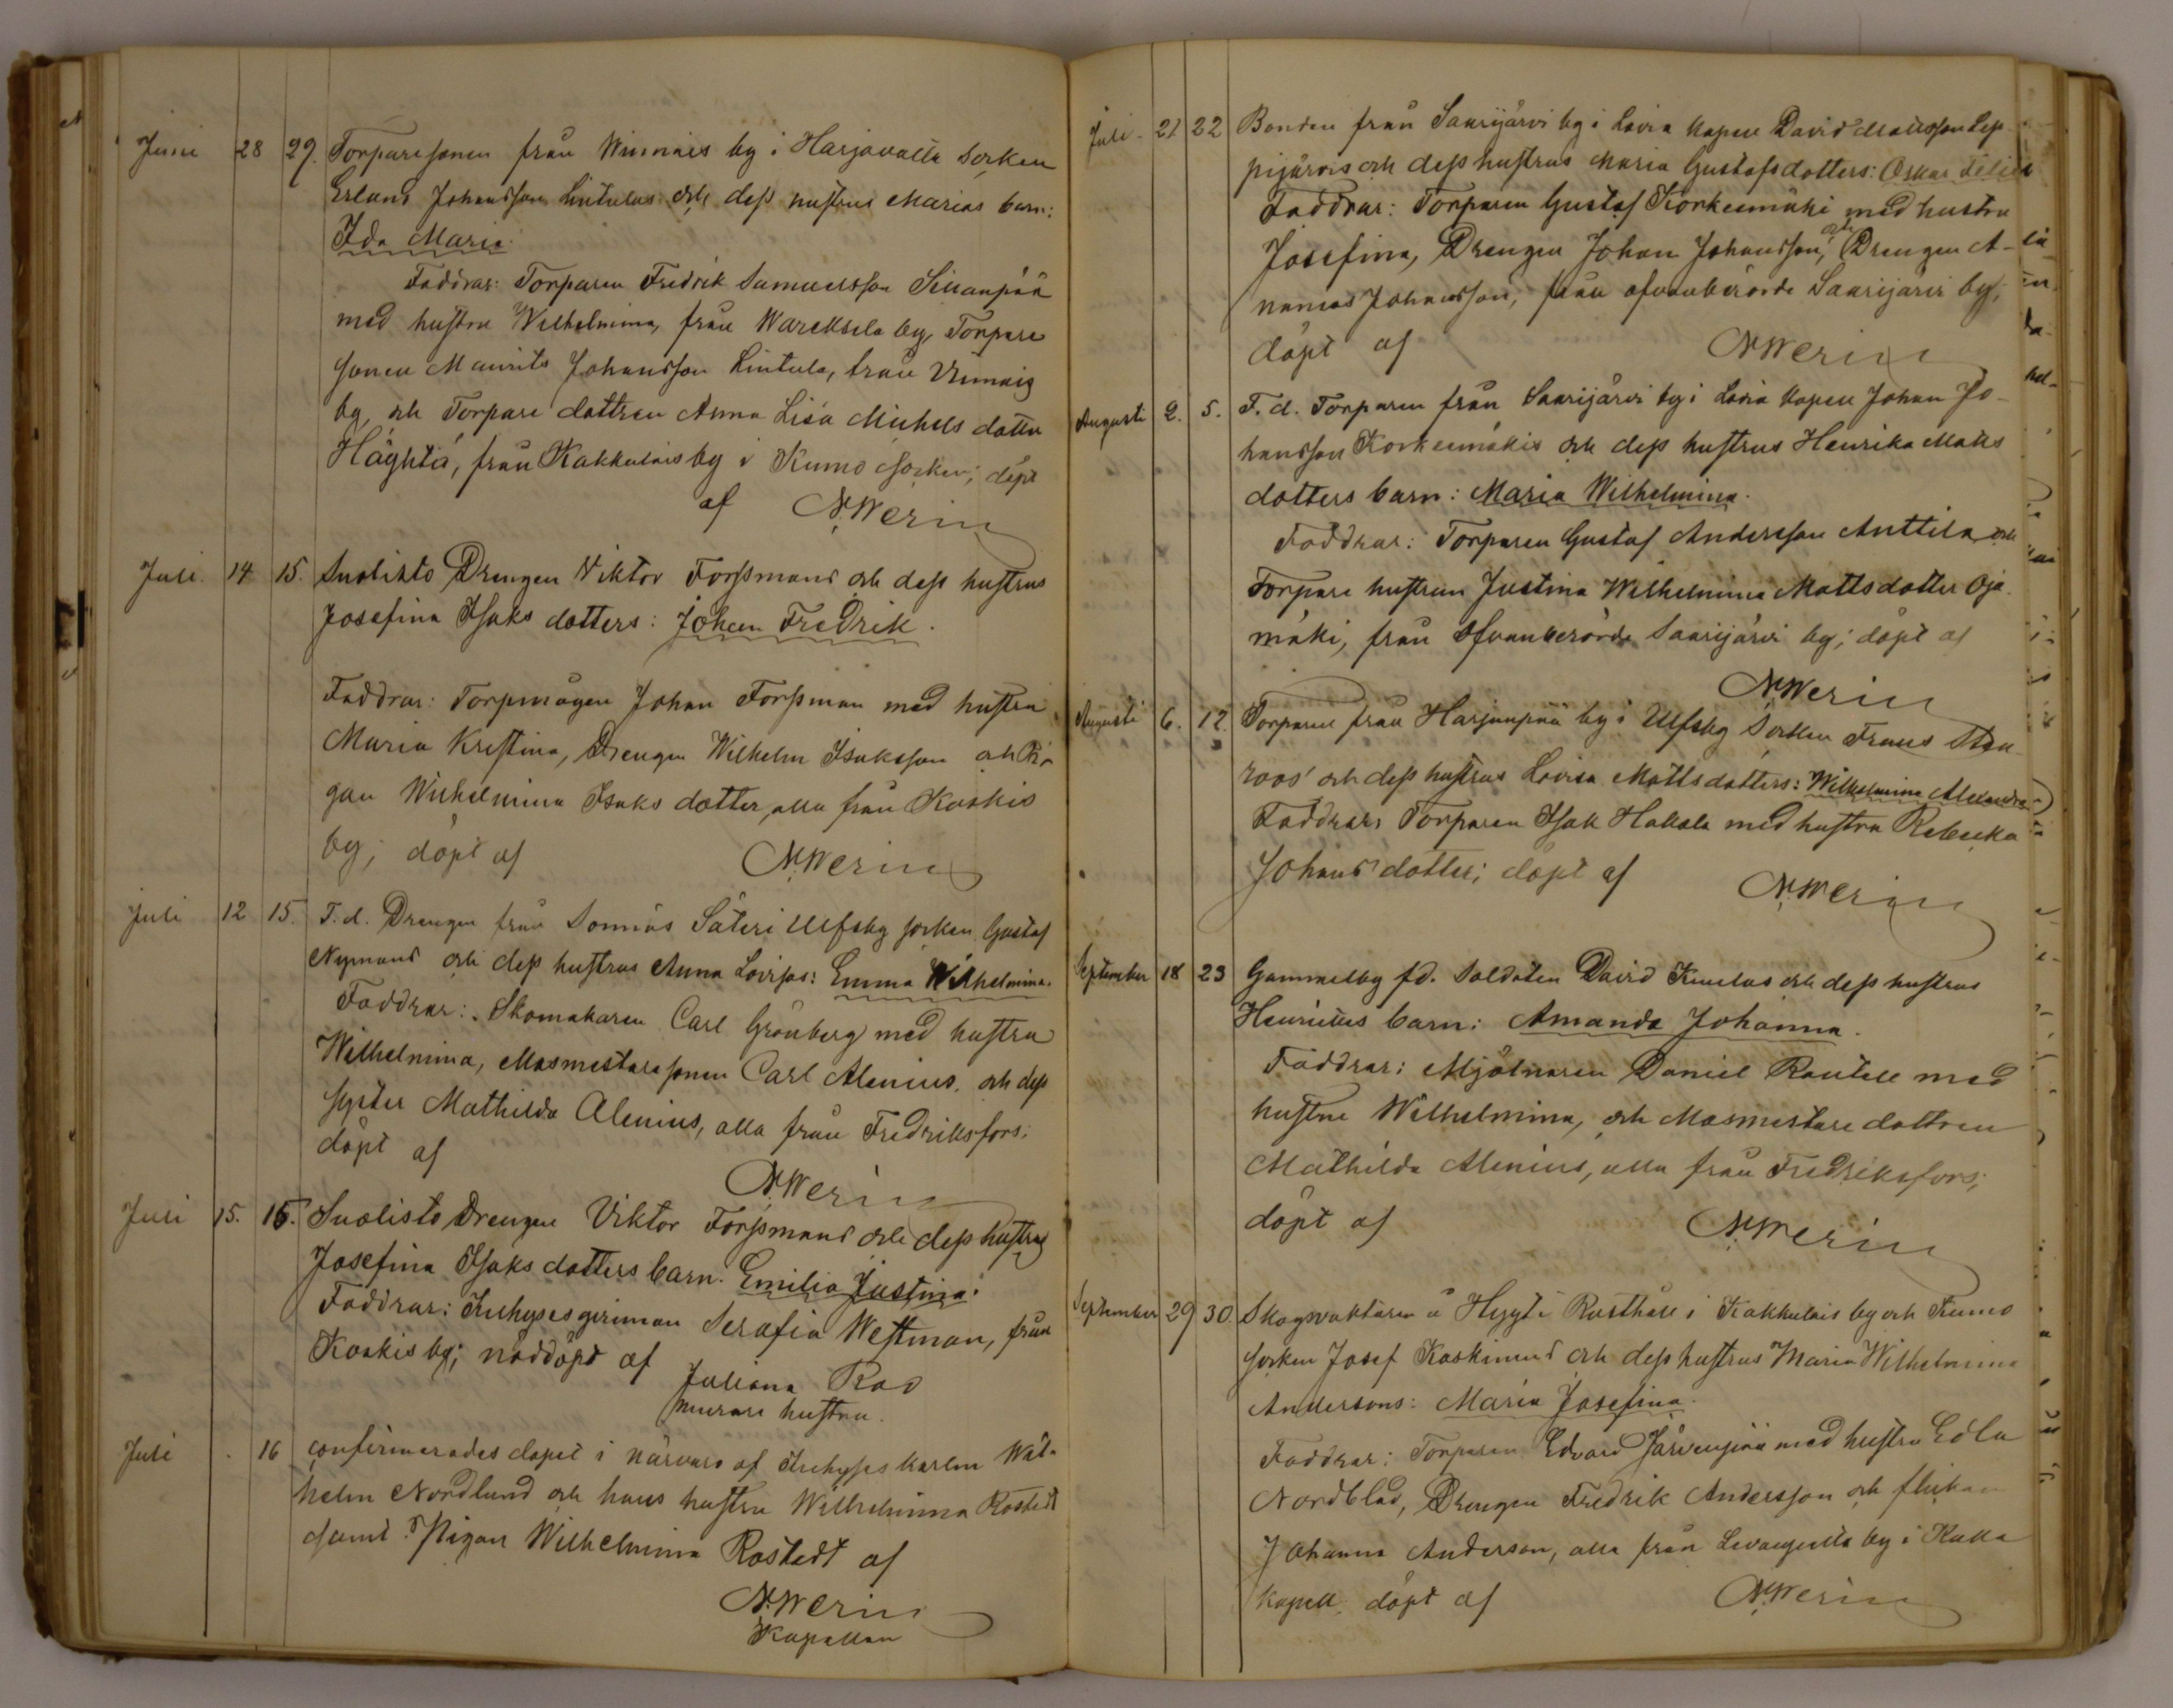 Juni 28 29. Torparesonen från Winnais by i Harjavalta Socken
Erland Johansson Lintulas och dess hustrus Marias barn:
Ida Maria.
Faddrar: Torparen Fredrik Samuelsson Sillanpää
med hustru Wilhelmina, från Wareksela by, Torpare
sonen Maurits Johansson Lintula, från Vinnais
by, och Torpare dottren Anna Lisa Michels dotter
Häyhtiö, från Kakkulais by i Kumo socken; döpt
af N. Werin
Juli 14 15. Suolisto Drengen Viktor Forssmans och dess hustrus
Josefina Isaks dotters: Johan Fredrik.
Faddrar: Torpmågen Johan Forssman med hustru
Maria Kristina, Drengen Wilhelm Isaksson och Pi-
gan Wilhelmina Isaks dotter, alla från Koskis
by; döpt af N. Werin
Juli 12 15. F. d. Drengen från Sonnäs Säteri Ulfsby socken Gustaf
Nymans och dess hustrus Anna Lovisas: Emma Wilhelmina.
Faddrar: Skomakaren Carl Grönberg med hustru
Wilhelmina, Masmestaresonen Carl Alenius, och dess
syster Mathilda Alenius, alla från Fredriksfors;
döpt af
N. Werin
Juli 15. 15. Suolisto Drengen Viktor Forssmans och dess hustrus
Josefina Isaks dotters barn: Emilia Justina.
Faddrar: Inhysesqvinnan Serafia Westman, från
Koskis by; nöddöpt af
Juliana Ros
murare hustru.
Juli 16 confirmerades dopet i närvaro af Inhyses karlen Wil-
helm Nordlund och hans hustru Wilhelmina Rostedt
samt Pigan Wilhelmina Rostedt af
N. Werin
Kapellan
Juli 21 22 Bonden från Saarijärvi by i Lavia kapell David Mattsson Lep-
pijärvis och dess hustrus Maria Gustafsdotters: Oskar Felix
Faddrar: Torparen Gustaf Korkeemäki med hustru
Josefina, Drengen Johan Johansson, och Drengen A-
nanias Johansson, från ofvanberörde Saarijärvi by;
döpt af N. Werin
Augusti 2. 5. F. d. Torparen från Saarijärvi by i Lavia kapell Johan Jo-
hansson Korkeemäkis och dess hustrus Henrika Matts
dotters barn: Maria Wilhelmina.
Faddrar: Torparen Gustaf Andersson Anttila och
Torpare hustrun Justina Wilhelmina Mattsdotter Oja-
mäki, från ofvanberörde Saarijärvi by; döpt af
N. Werin
Augusti 6. 12. Torparen från Harjunpää by i Ulfsby Socken Frans Sten-
roos' och dess hustrus Lovisa Mattsdotters: Wilhelmina Alexandra
Faddrar: Torparen Isak Hakala med hustru Rebecka
Johans dotter; döpt af N. Werin
September 18 23 Gammelby fd. Soldaten David Kinelas och dess hustrus
Henriettes barn: Amanda Johanna.
Faddrar: Mjölnaren Daniel Rautell med
hustru Wilhelmina, och Masmestare dottren
Mathilda Alenius, alla från Fredriksfors;
döpt af N. Werin
September 29 30. Skogsvaktaren å Hyyti Rusthåll i Kakkulais by och Kumo
socken Josef Koskinens och dess hustrus Maria Wilhelmina
Andersons: Maria Josefina.
Faddrar: Torparen Edvard Järvenpää med hustru Edla
Nordblad, Drengen Fredrik Andersson och flickan
Johanna Anderson, alla från by i
kapell, döpt af N. Werin